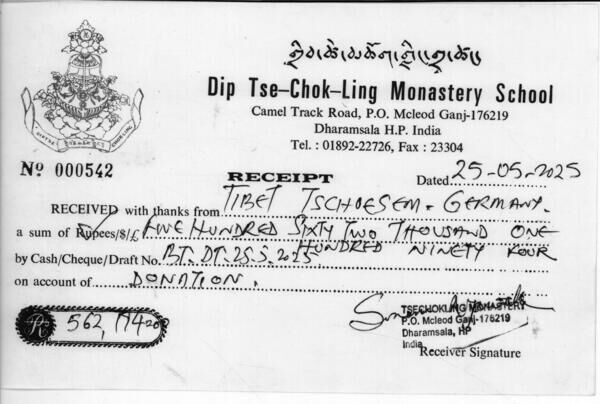 Dip Tse-Chok-Ling Monastery School
Camel Track Road, P.O. Mcleod Ganj-176219
Dharamsala H.P. India
Tel. : 01892-22726, Fax : 23304
No 000542
RECEIPT
Dated 25-05-2025
RECEIVED with thanks from TIBET TSCHOESEM - GERMANY.
a sum of Rupees/$/£ FIVE HUNDRED SIXTY TWO THOUSAND ONE
HUNDRED NINETY FOUR
by Cash/Cheque/Draft No. BT. DT. 25.5.2025
on account of DONATION.
TSECHOKLING MONASTERY
P.O. Mcleod Ganj-176219
Dharamsala, HP
India
Receiver Signature